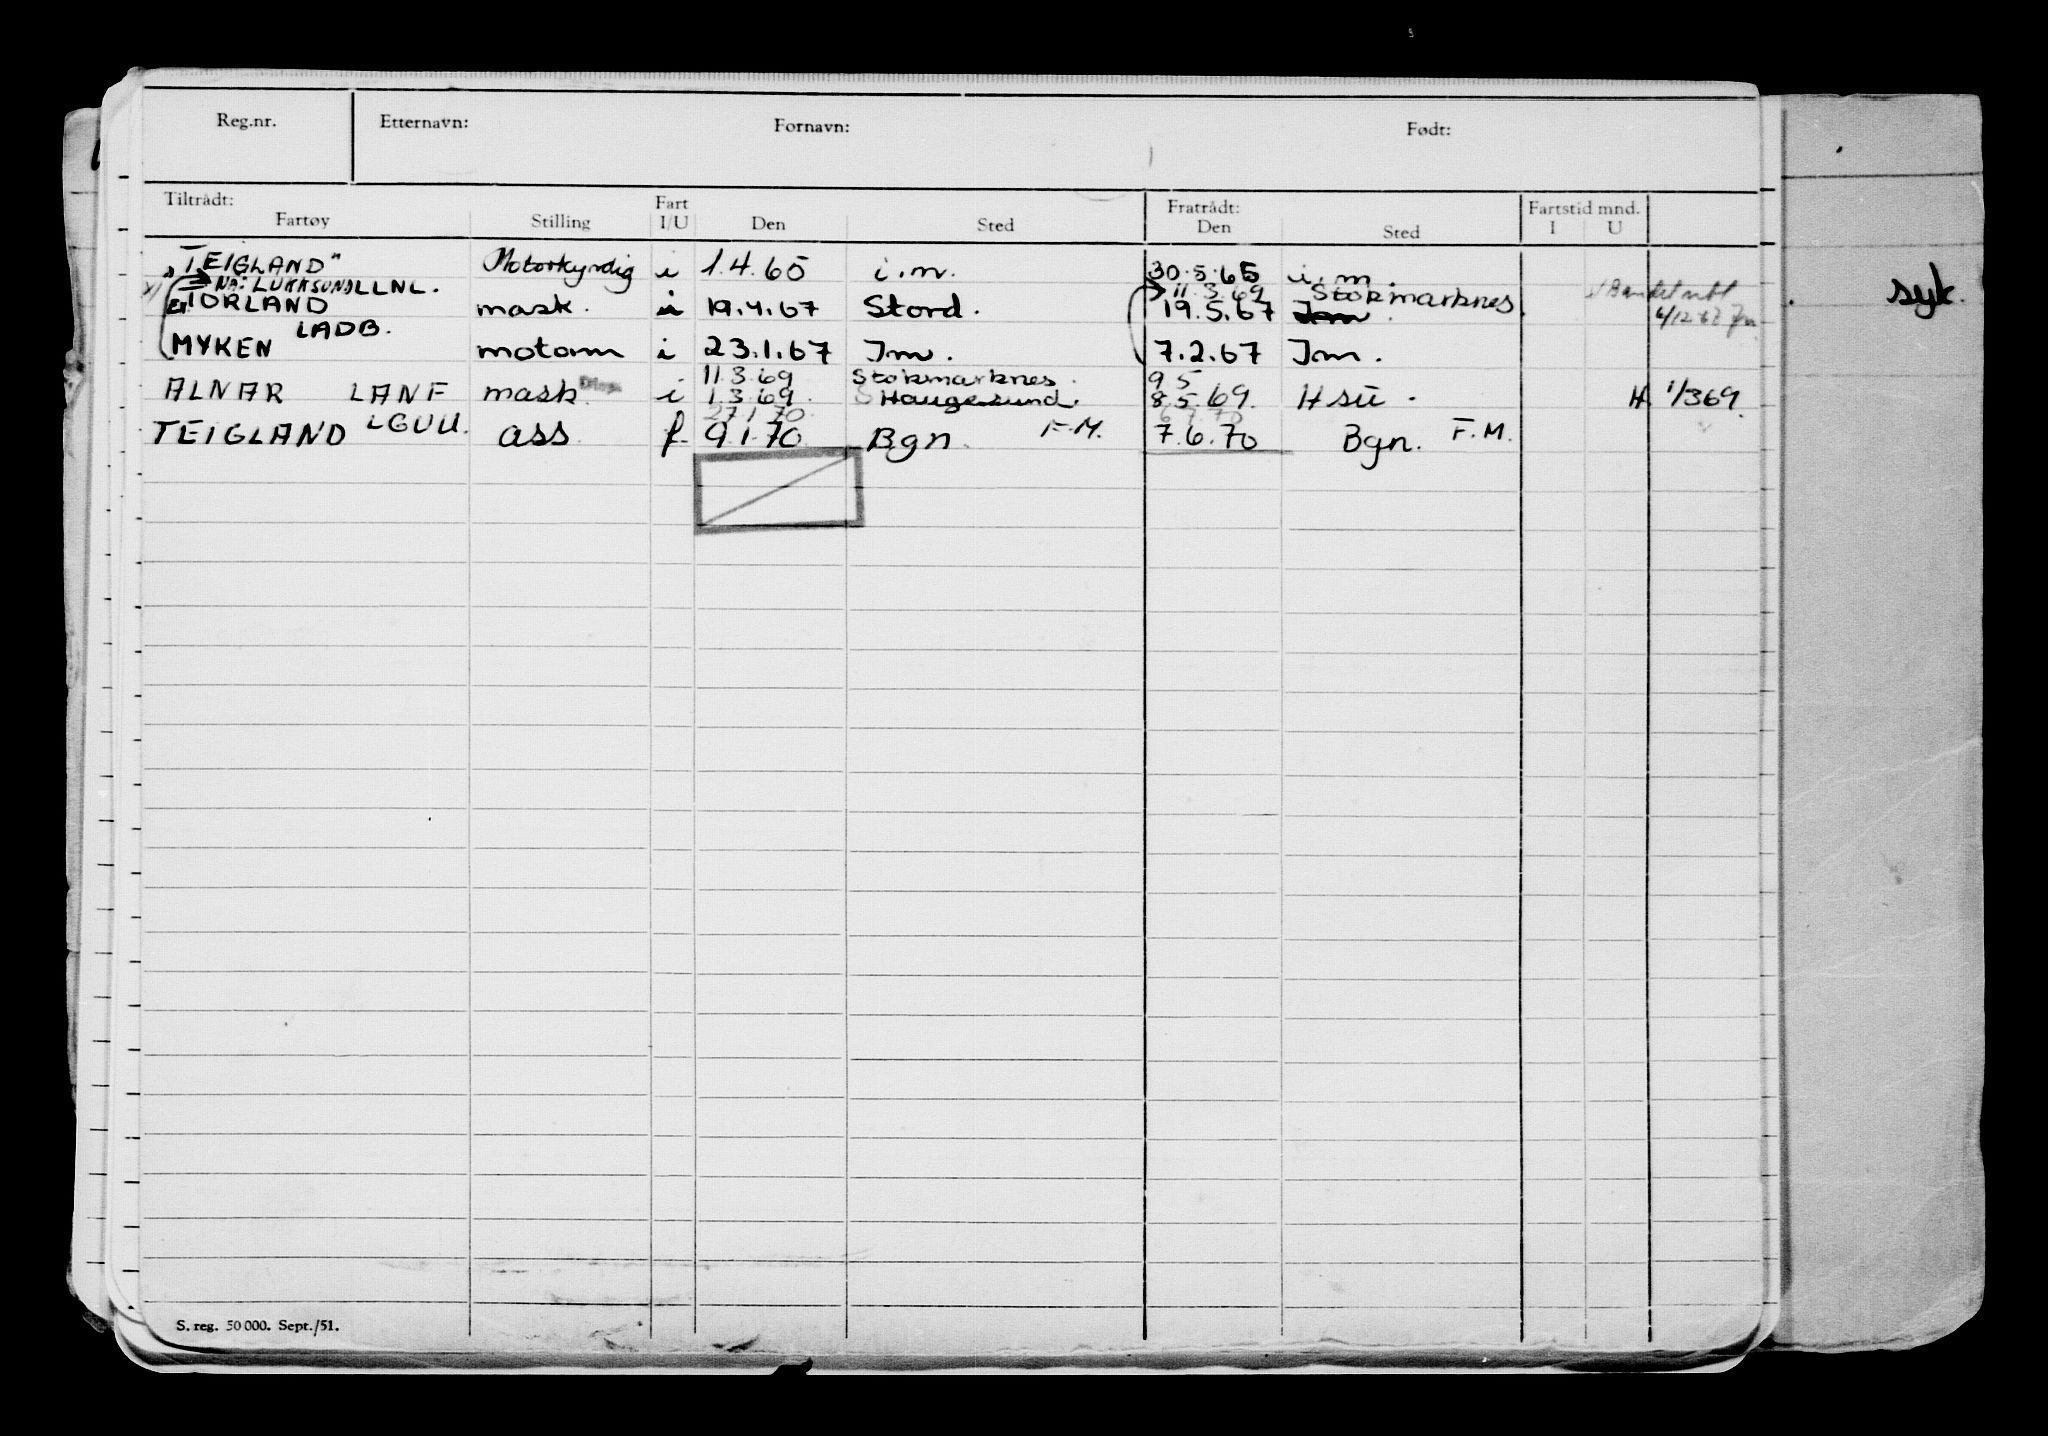 Reg.nr. Etternavn: Fornavn: Født:
Tiltrådt: Fart Fratrådt: Fartstid mnd.
Fartøy Stilling I/U Den Sted Den Sted I U
"TEIGLAND" Motorkyndig i 1.4.65 i.m. 30.5.65 i.m.
Nå: LUKKSUND LLNL. 11.3.69 Stokmarknes
TORLAND mask. i 19.4.67 Stord. 19.5.67 Jm. syk.
LADB.
MYKEN motorm i 23.1.67 Jm. 7.2.67 Jm.
11.3.69 Stokmarknes. 9 5
ALNAR LANF mask. i 1.3.69. Haugesund. 8.5.69. Hsu. H. 1/369.
27.1.70.
TEIGLAND LGUU. ass f 9.1.70 Bgn. F.M. 7.6.70 Bgn. F.M.
S. reg. 50 000. Sept./51.